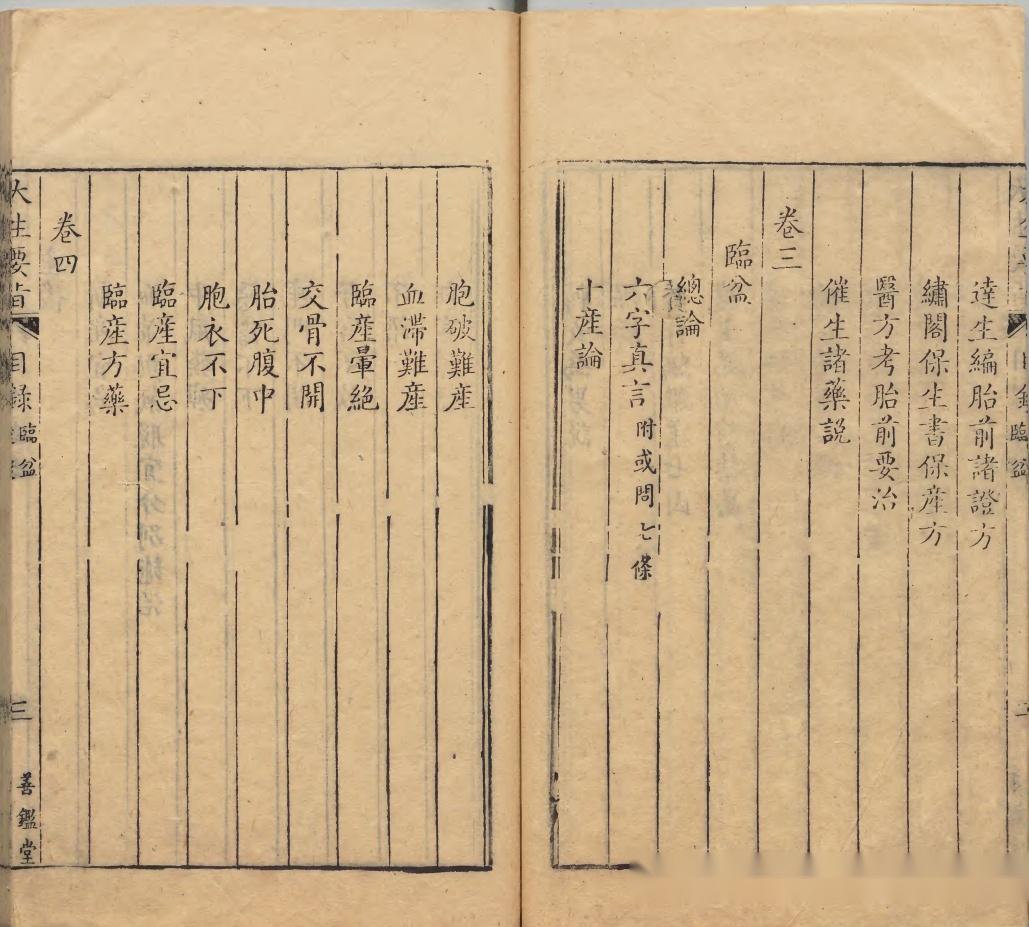 達生編胎前諸證方
繡閣保生書保產方
醫方考胎前要治
催生諸藥説
卷三
臨盆
總論
六字真言附或問七條
十産論
目錄臨盆
胞破難産
血滯難産
臨産暈絶
交骨不開
胎死腹中
胞衣不下
臨産宜忌
臨産方藥
卷四
大生要旨 目録臨盆 三 善鑑堂